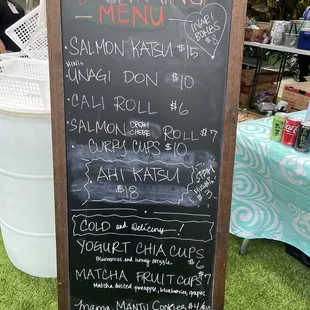 MENU
INARI
BOMBS
$8
SALMON KATSU $15
MINI
UNAGI DON $10
CALI ROLL $6
SALMON CREAM CHEESE ROLL $7
CURRY CUPS $10
AHI KATSU
$18
COLD and Delicious!
YOGURT CHIA CUPS
Blueberries and honey drizzle $6
MATCHA FRUIT CUPS $7
Matcha dusted pineapple, blueberries, grapes
Mama MANTU COOKIES $4